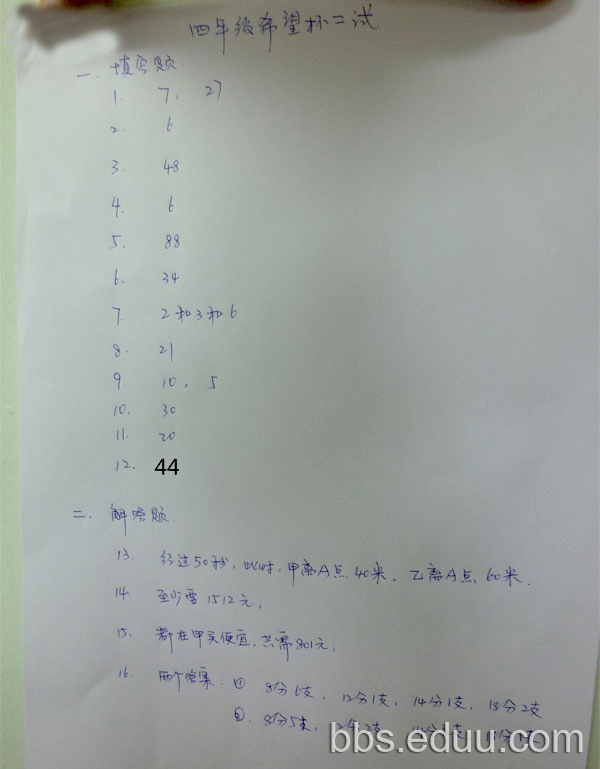 四年级希望杯二试
一. 填空题.
1. 7, 27
2. 6
3. 48
4. 6
5. 88
6. 34
7. 2和3和6
8. 21
9. 10, 5
10. 30
11. 20
12. 44
二. 解答题.
13. 经过50秒, 此时, 甲离A点40米, 乙离A点60米.
14. 至少需1512元;
15. 都在甲买便宜, 共需801元;
16. 两个答案: ① 8分6支, 12分1支, 14分1支, 18分2支
② 8分5支, 12分
bbs.eduu.com